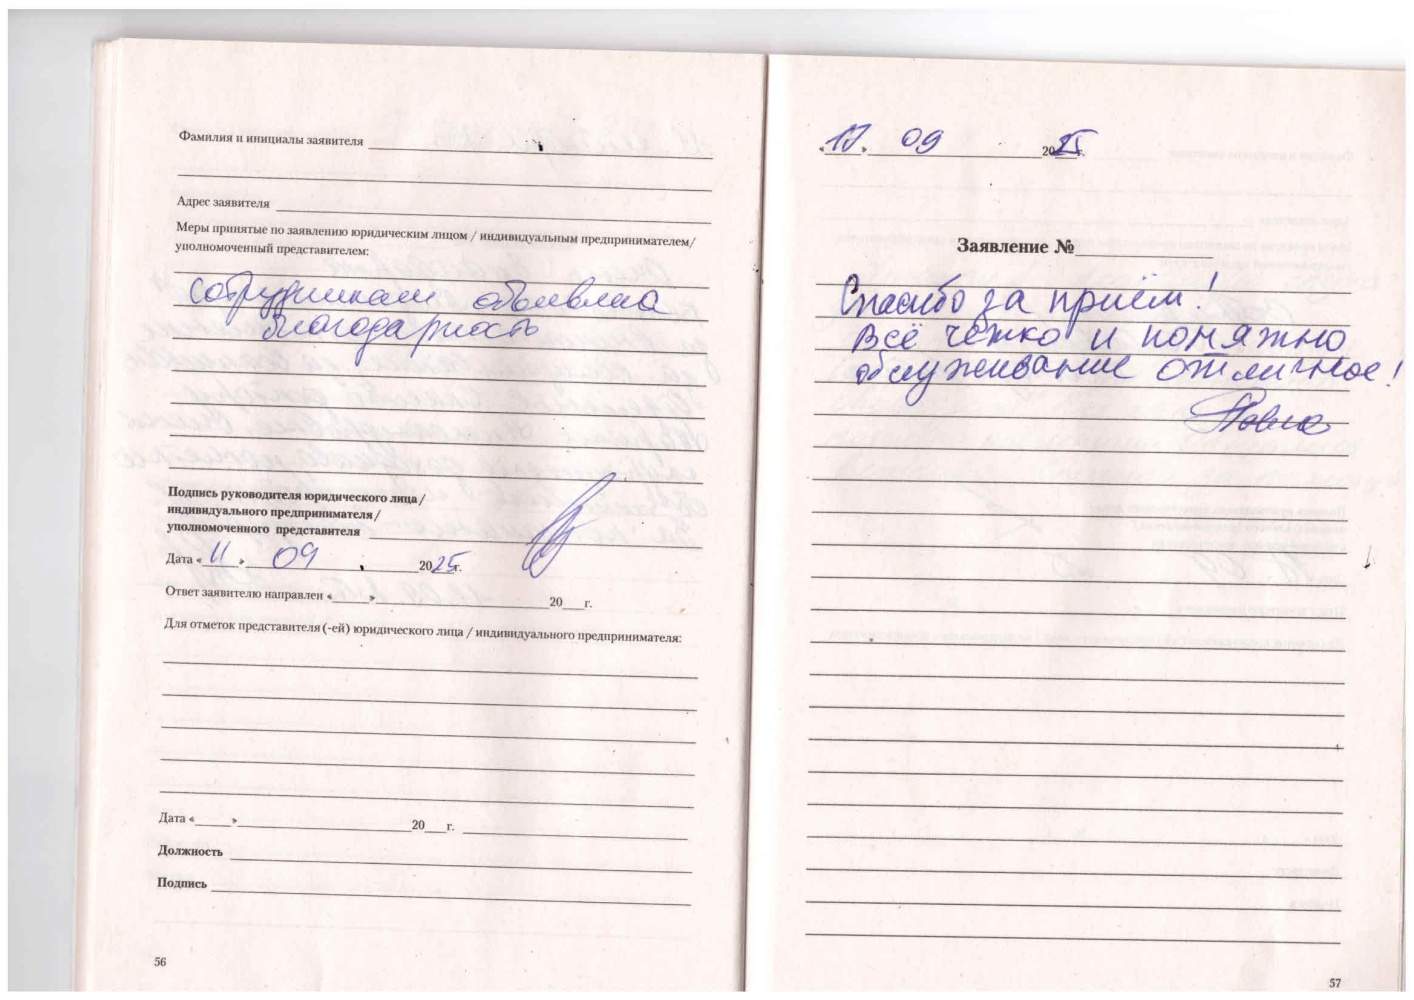 Фамилия и инициалы заявителя
Адрес заявителя
Меры принятые по заявлению юридическим лицом / индивидуальным предпринимателем/
уполномоченный представителем:
сотрудникам объявлена
благодарность
Подпись руководителя юридического лица/
индивидуального предпринимателя/
уполномоченного представителя
Дата «11» 09 2025г.
Ответ заявителю направлен «____»____20___г.
Для отметок представителя (-ей) юридического лица / индивидуального предпринимателя:
Дата «____»____20___г.
Должность
Подпись
56
«17» 09 2025г.
Заявление №
Спасибо за приём!
Всё чётко и понятно
обслуживание отличное!
57